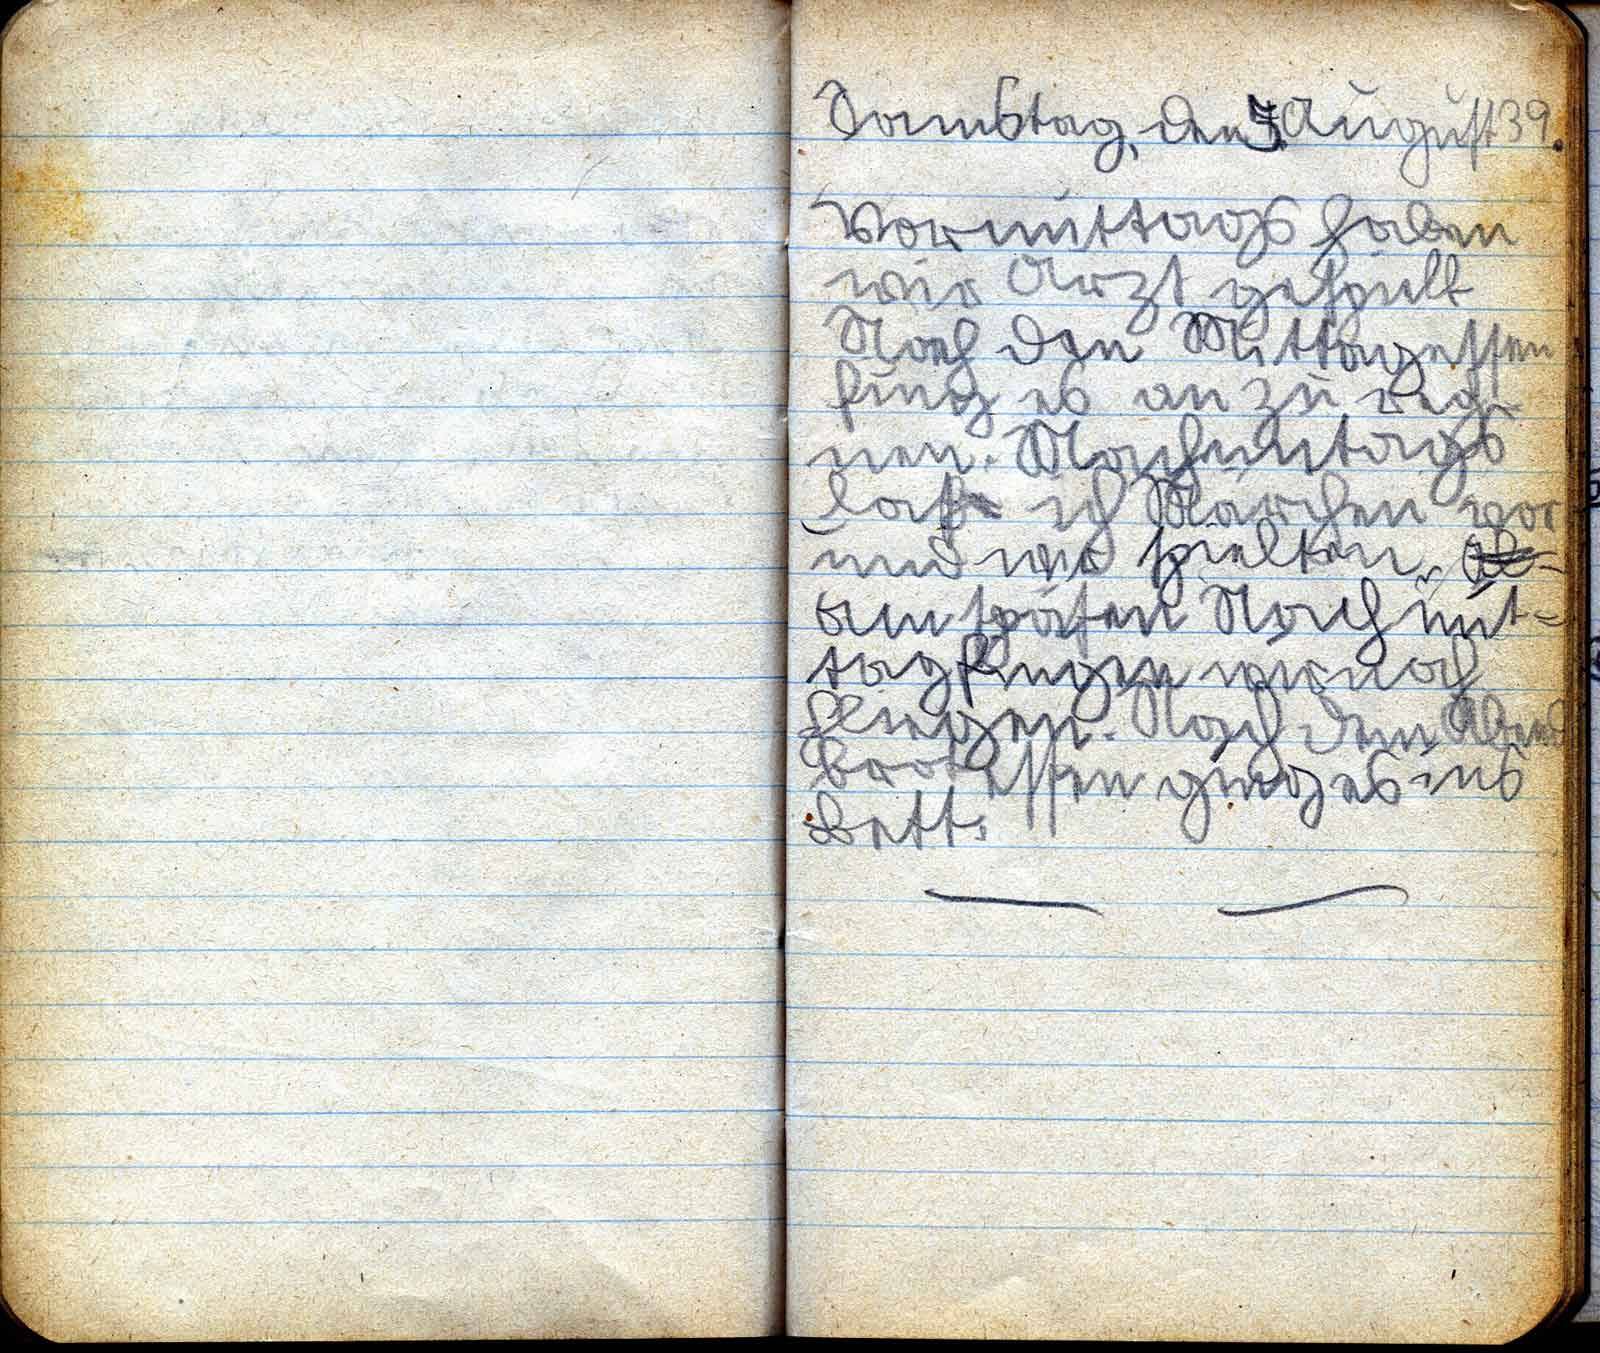 Samstag, den 5. August 39.
Vormittags haben
wir Arzt gespielt
Nach den Mittagessen
fing es an zu reg-
nen. Nachmittags
laß ich Märchen vor
und wir spielten.
am späten Nachmit-
tag fingen wir noch
fliegen. Nach dem Abend
brotessen ging es ins
Bett.